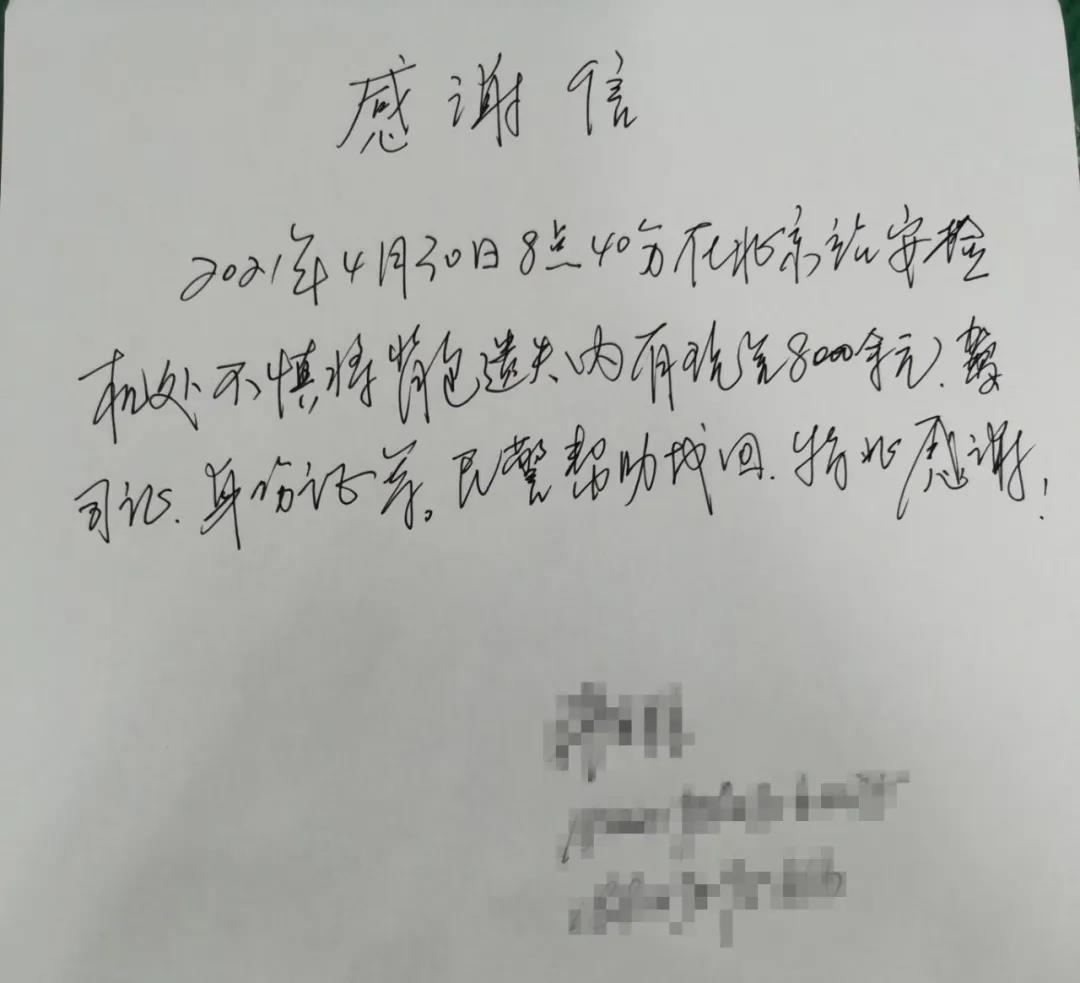 感谢信
2021年4月30日8点40分在北京站安检
机处不慎将背包遗失、内有现金8000余元、驾
司证、身份证等。民警帮助找回.特此感谢!